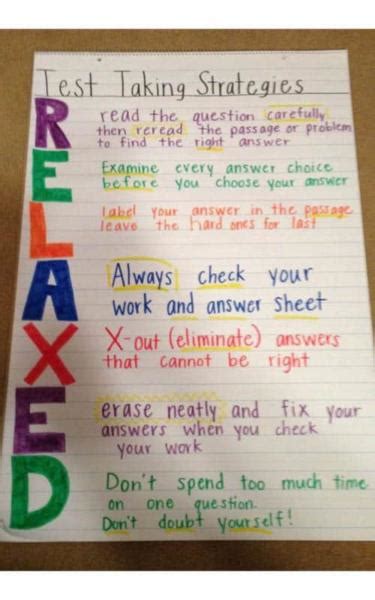 Test Taking Strategies
R read the question carefully
then reread the passage or problem
to find the right answer
E Examine every answer choice
before you choose your answer
L label your answer in the passage
leave the hard ones for last
A Always check your
work and answer sheet
X X-out (eliminate) answers
that cannot be right
E erase neatly and fix your
answers when you check
your work
D Don't spend too much time
on one question.
Don't doubt yourself!